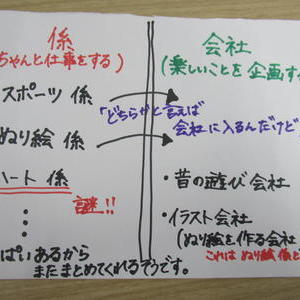 係
ちゃんと仕事をする)
スポーツ 係
ぬり絵 係
ハート 係
謎!!
⋮
ぱいあるから
またまとめてくれるそうです。
会社
(楽しいことを企画する
「どちらかと言えば
会社に入るんだけど
・昔の遊び会社
・イラスト会社
(ぬり絵を作る会社
これは ぬり絵 係と